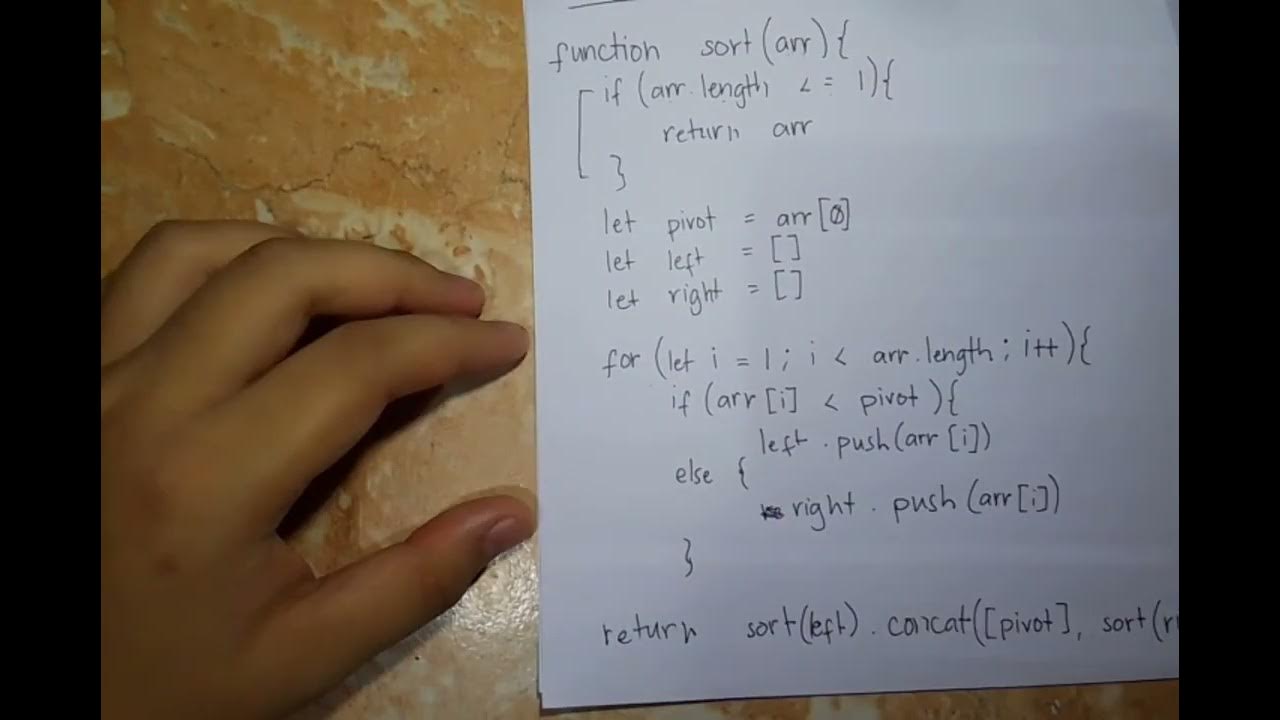 function sort(arr){
if (arr.length <= 1){
return arr
}
let pivot = arr[0]
let left = []
let right = []
for (let i = 1; i < arr.length; i++){
if (arr[i] < pivot){
left.push(arr[i])
else {
right.push(arr[i])
}
return sort(left).concat([pivot], sort(